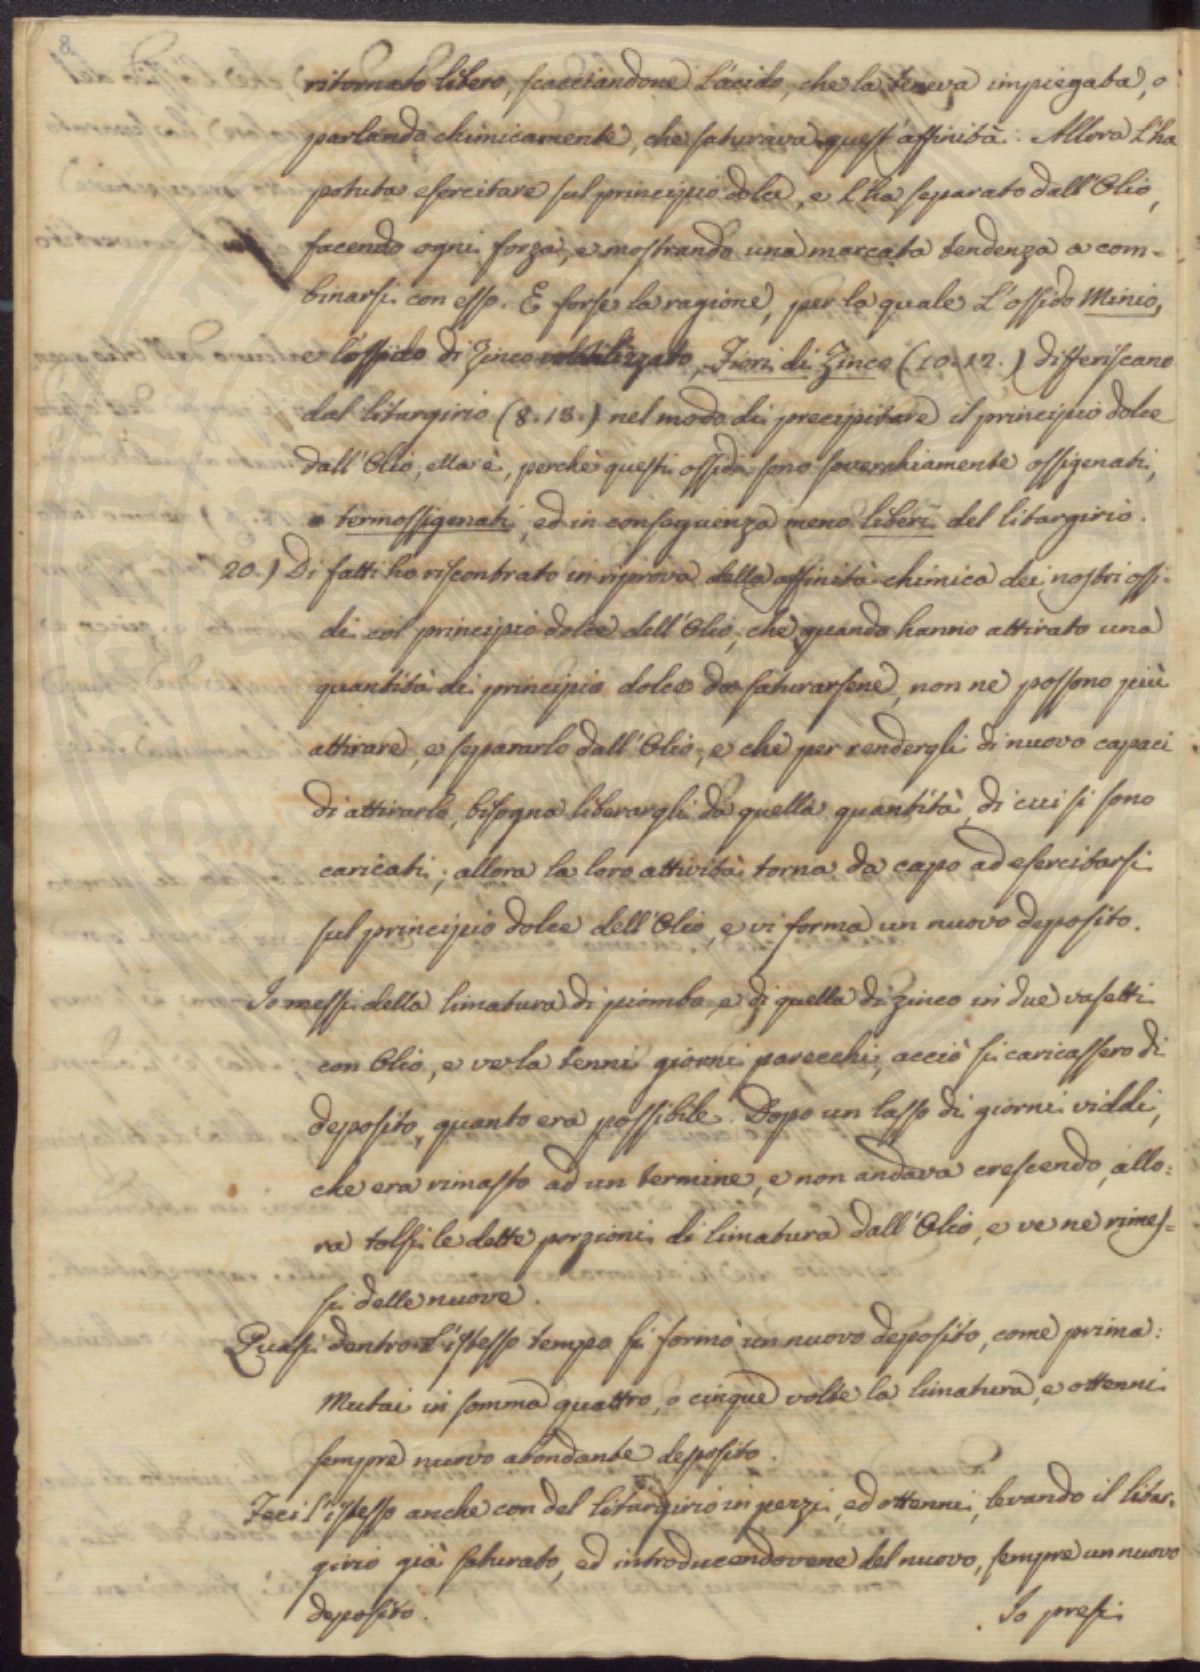 8.
ritornato libero, scacciandone l'acido, che la teneva impiegata, o
parlando chimicamente, che saturava quest'affinità. Allora l'ha
potuta esercitare sul principio dolce, e l'ha separato dall'Olio,
facendo ogni forza, e mostrando una marcata tendenza a com-
binarsi con esso. E forse la ragione, per la quale l'ossido Minio,
e l'ossido di Zinco volatilizzato, Fiori di Zinco (10. 12.) differiscano
dal litargirio (8. 13.) nel modo di precipitare il principio dolce
dall'Olio, ella è, perchè questi ossidi sono soverchiamente ossigenati,
o termossigenati, ed in conseguenza meno liberi del litargirio.
20.) Di fatti ho riscontrato in riprova della affinità chimica dei nostri ossi-
di col principio dolce dell'Olio, che quando hanno attirato una
quantità di principio dolce da saturarsene, non ne possono più
attirare, e separarlo dall'Olio; e che per rendergli di nuovo capaci
di attirarlo, bisogna liberargli da quella quantità, di cui si sono
caricati; allora la loro attività torna da capo ad esercitarsi
sul principio dolce dell'Olio, e vi forma un nuovo deposito.
Io messi della limatura di piombo, e di quella di zinco in due vasetti
con Olio, e ve la tenni giorni parecchi, acciò si caricassero di
deposito, quanto era possibile. Dopo un lasso di giorni viddi,
che era rimasto ad un termine, e non andava crescendo, allo-
ra tolsi le dette porzioni di limatura dall'Olio, e ve ne rimes-
si delle nuove.
Quasi dentro l'istesso tempo si formò un nuovo deposito, come prima:
Mutai in somma quattro, o cinque volte la limatura, e ottenni
sempre nuovo abondante deposito.
Feci l'istesso anche con del litargirio in pezzi, ed ottenni, levando il litar-
girio già saturato, ed introducendovene del nuovo, sempre un nuovo
deposito.
Io presi